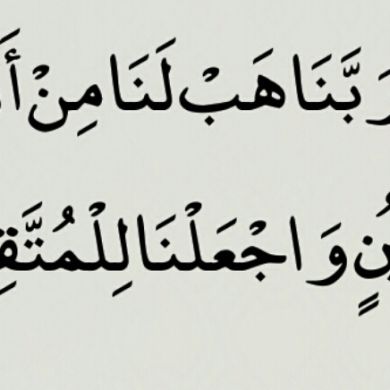 رَبَّنَا هَبْ لَنَا مِنْ
وَاجْعَلْنَا لِلْمُتَّقِ